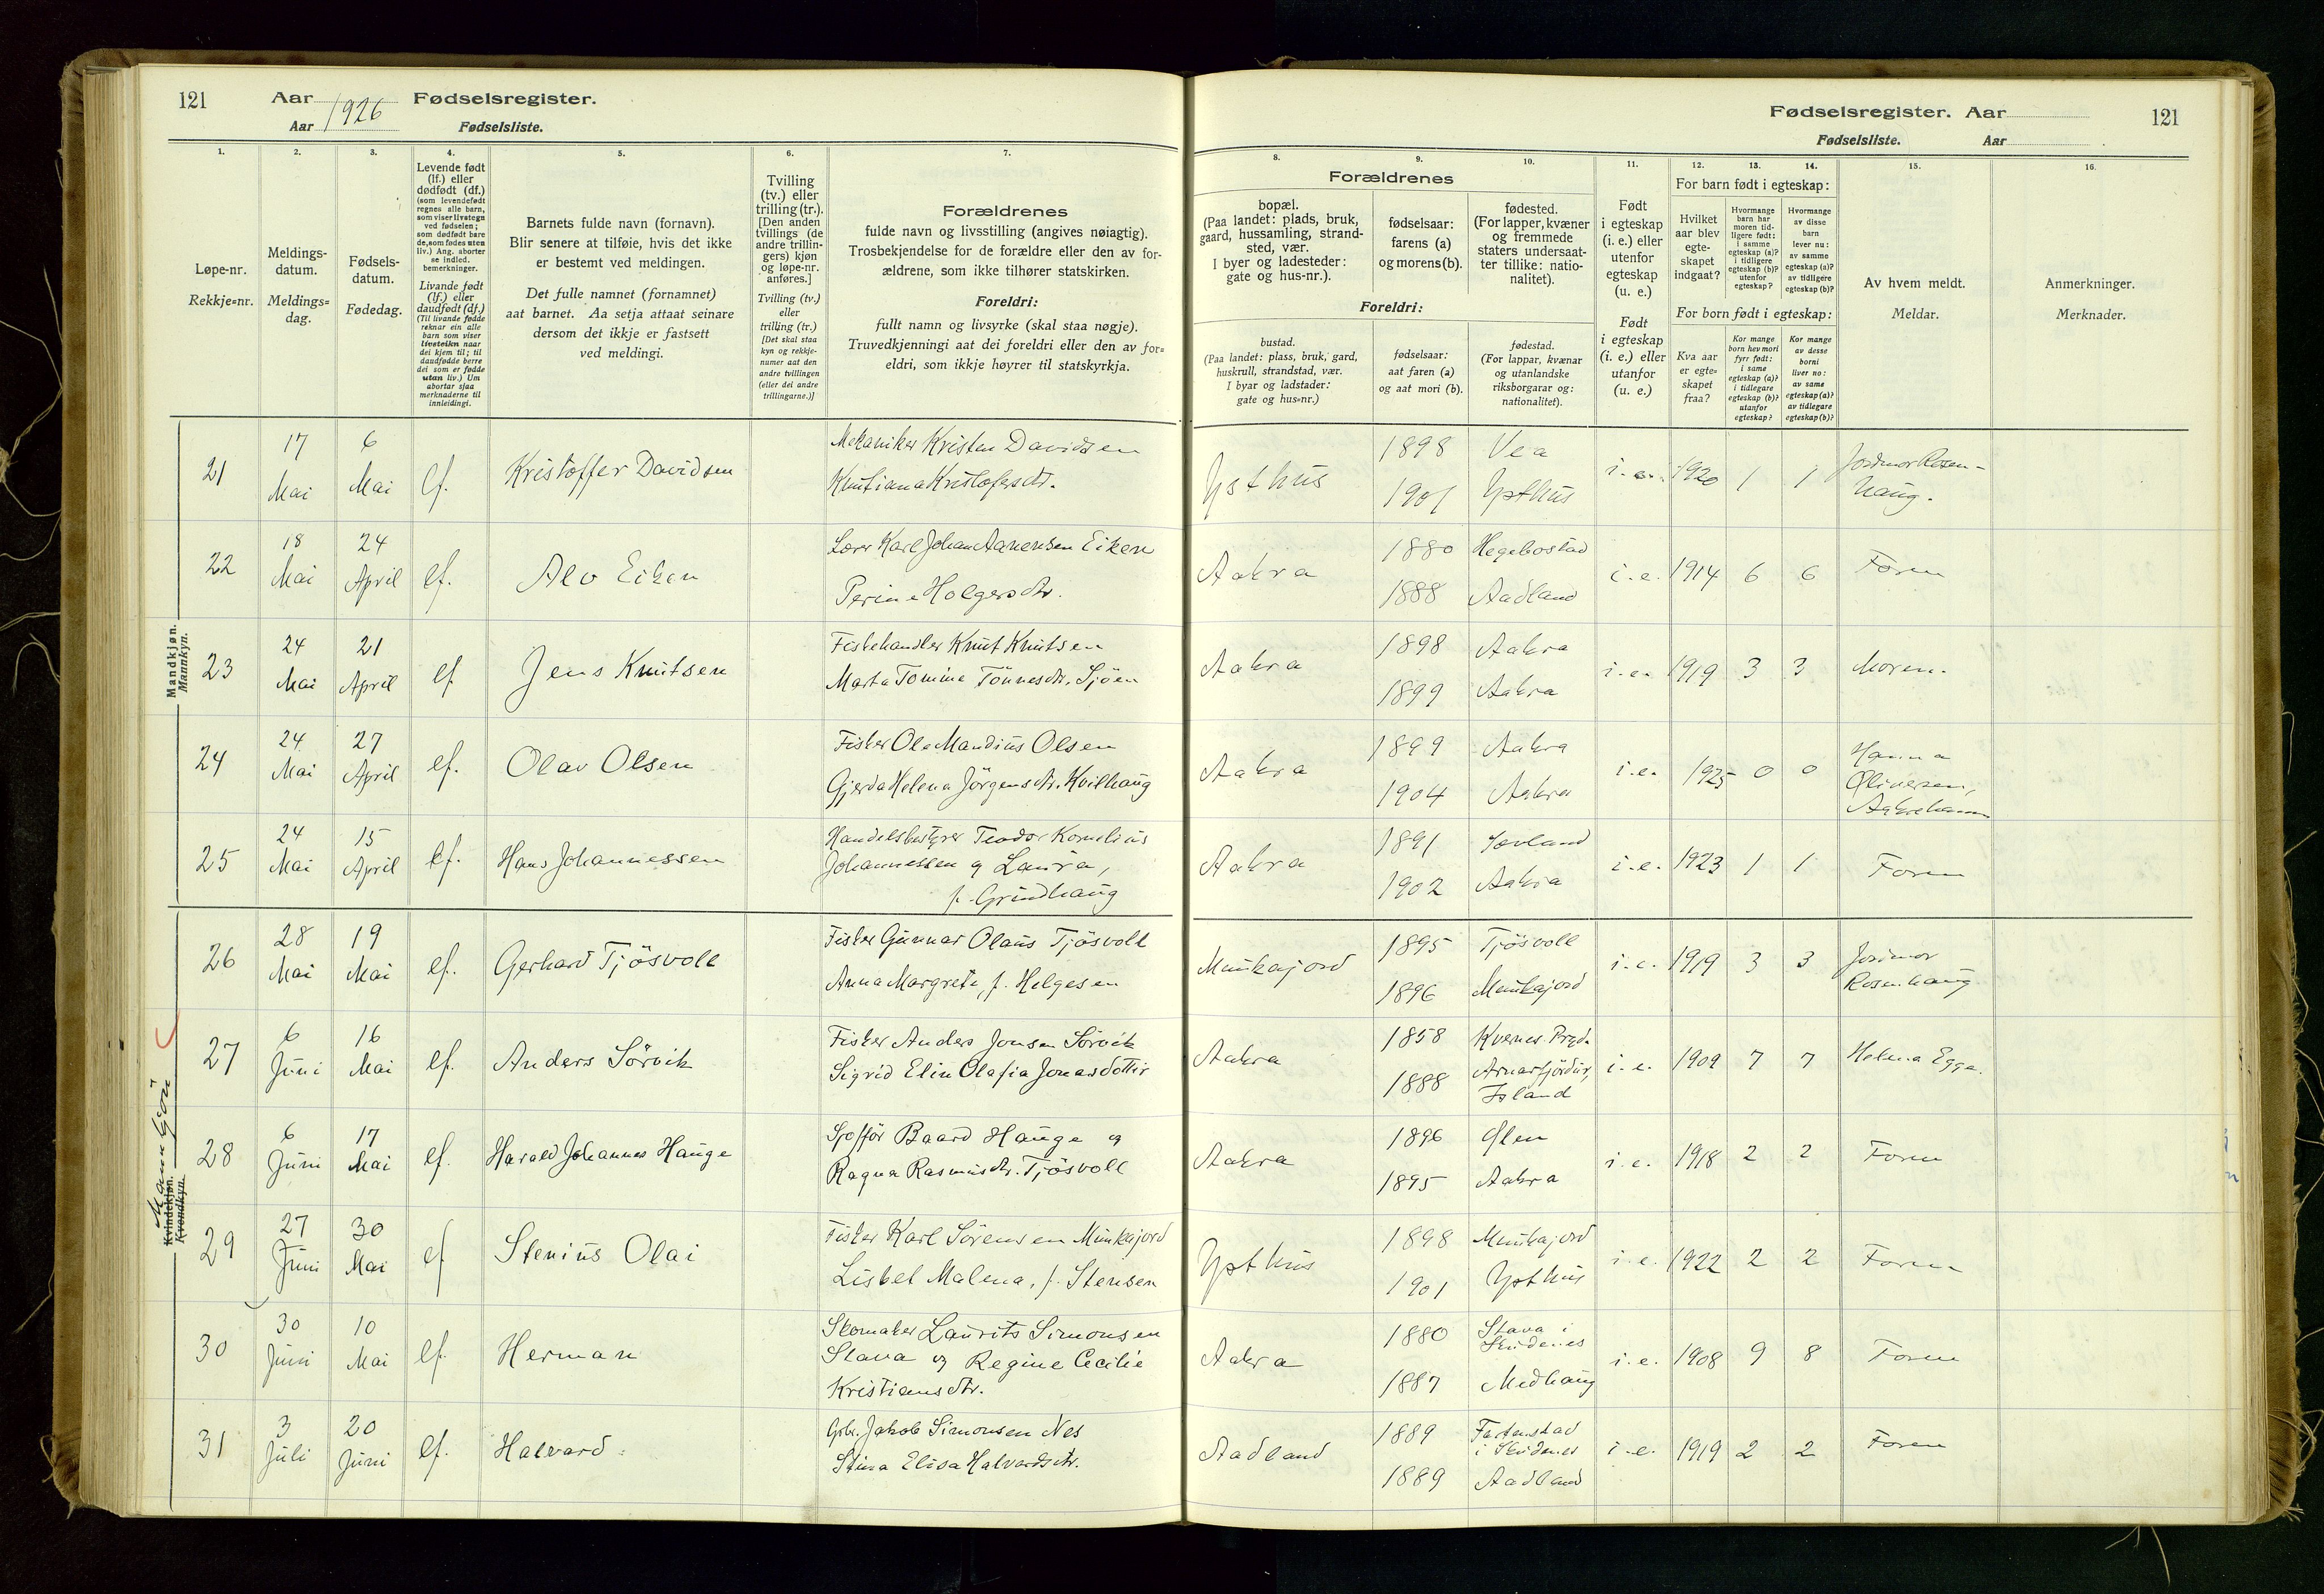 121 Aar 1926 Fødselsregister.
Aar Fødselsliste.
Fødselsregister. Aar 121
Fødselsliste. Aar
1. 2. 3. 4. 5. 6. 7. 8. 9. 10. 11. 12. 13. 14. 15. 16.
Løpe-nr.
Rekkje=nr.
Meldings-
datum.
Meldings=
dag.
Fødsels-
datum.
Fødedag.
Levende født
(lf.) eller
dødfødt (df.)
(som levendefødt
regnes alle barn,
som viser livstegn
ved fødselen;
som dødfødt bare
de, som fødes uten
liv.) Ang. aborter
se indled.
bemerkninger.
Livande født
(lf.) eller
daudfødt (df.)
(Til livande fødde
reknar ein alle
barn som viser
livsteikn naar
dei kjem til; til
daudfødde berre
dei som er fødde
utan liv.) Um
abortar sjaa
merknaderne til
innleidingi.
Barnets fulde navn (fornavn).
Blir senere at tilføie, hvis det ikke
er bestemt ved meldingen.
Det fulle namnet (fornamnet)
aat barnet. Aa setja attaat seinare
dersom det ikkje er fastsett
ved meldingi.
Tvilling
(tv.) eller
trilling (tr.).
[Den anden
tvillings (de
andre trillin-
gers) kjøn
og løpe-nr.
anføres.]
Tvilling (tv.)
eller
trilling (tr.)
[Det skal staa
kyn og rekkje-
numer aat den
andre tvillingen
(eller dei andre
trillingarne.)]
Forældrenes
fulde navn og livsstilling (angives nøiagtig).
Trosbekjendelse for de forældre eller den av for-
ældrene, som ikke tilhører statskirken.
Foreldri:
fullt namn og livsyrke (skal staa nøgje).
Truvedkjenningi aat dei foreldri eller den av for=
eldri, som ikkje høyrer til statskyrkja.
Forældrenes
bopæl.
(Paa landet: plads, bruk,
gaard, hussamling, strand-
sted, vær.
I byer og ladesteder:
gate og hus-nr.).
fødselsaar:
farens (a)
og morens (b).
fødested.
(For lapper, kvæner
og fremmede
staters undersaat-
ter tillike: natio-
nalitet).
Foreldri:
bustad.
(Paa landet: plass, bruk, gard,
huskrull, strandstad, vær.
I byar og ladstader:
gate og hus=nr.)
fødselsaar:
aat faren (a)
og aat mori (b).
fødestad.
(For lappar, kvænar
og utanlandske
riksborgarar og:
nationalitet).
Født
i egteskap
(i. e.) eller
utenfor
egteskap
(u. e.)
Født
i egteskap
(i. e.) eller
utanfor
(u. e.)
For barn født i egteskap:
Hvilket
aar blev
egte-
skapet
indgaat?
Hvormange
barn har
moren tid-
ligere født:
i samme
egteskap (a)?
i tidligere
egteskap (b)?
utenfor
egteskap?
Hvormange
av disse
barn
lever nu:
av samme
egteskap (a)?
av tidligere
egteskap (b)?
For born født i egteskap:
Kva aar
er egte=
skapet
fraa?
Kor mange
born hev mori
fyrr født:
i same
egteskap (a)?
i tidlegare
egteskap (b)?
utanfor
egteskap?
Kor mange
av desse
borni
liver no:
av same
egteskap (a)?
av tidlegare
egteskap (b)?
Av hvem meldt.
Meldar.
Anmerkninger.
Merknader.
Mandkjøn.
Mannkyn.
21 17 Mai 6 Mai lf. Kristoffer Davidsen
Mekaniker Kristen Davidsen
Knutiana Kristofersdtr.
Ysthus 1898 Vea 1901 Ysthus i.e. 1920 1 1 Jordmor Rosen-
haug.
22 18 Mai 24 April lf. Alv Eiken
Lærer Karl Johan Aanensen Eiken
Perine Holgersdtr.
Aakra 1880 Hegebostad 1888 Aadland i.e. 1914 6 6 Faren
23 24 Mai 21 April lf Jens Knutsen
Fiskehandler Knut Knutsen
Marta Tomine Tönnesdtr. Sjöen
Aakra 1898 Aakra 1899 Aakra i.e. 1919 3 3 Moren.
24 24 Mai 27 April lf. Olav Olsen
Fisker Ole Mandius Olsen
Gjerda Helena Jörgensdtr. Kvilhaug
Aakra 1899 Aakra 1904 Aakra i.e. 1925 0 0 Hanna
Oliversen,
Aakrehamn
25 24 Mai 15 April lf. Hans Johannessen
Handelsbestyrer Teodor Kornelius
Johannessen og Laura,
f. Grindhaug
Aakra 1891 Sævland 1902 Aakra i.e. 1923 1 1 Faren
Mannkjön
Kvindekjøn.
Kvendkyn.
26 28 Mai 19 Mai lf. Gerhard Tjösvoll
Fisker Gunnar Olaus Tjösvoll
Anna Margrete, f. Helgesen
Munkajord 1895 Tjösvoll 1896 Munkajord i.e. 1919 3 3 Jordmor
Rosenhaug
27 6 Juni 16 Mai lf. Anders Sörvik
Fisker Anders Jonsen Sörvik
Sigrid Elin Olafia Jonasdottir
Aakra 1858 Kvernes Prgd. 1888 Arnarfjördur,
Island i.e. 1909 7 7 Helena Egge.
28 6 Juni 17 Mai lf. Harald Johannes Hauge
Sjofför Baard Hauge og
Ragna Rasmusdtr. Tjösvoll
Aakra 1896 Ølen 1895 Aakra i.e. 1918 2 2 Faren
29 27 Juni 30 Mai lf Stenius Olai
Fisker Karl Sörensen Munkajord
Lisbet Malena, f. Stensen
Ysthus 1898 Munkajord 1901 Ysthus i.e. 1922 2 2 Faren
30 30 Juni 10 Mai lf. Herman
Skomaker Laurits Simonsen
Stava og Regine Cecilie
Kristiansdtr.
Aakra 1880 Stava i
Skudenes 1887 Medhaug i.e. 1908 9 8 Faren
31 3 Juli 20 Juni lf. Halvard
Grbr. Jakob Simonsen Nes
Stina Elisa Halvardsdtr.
Aadland 1889
i Skudenes 1889 Aadland i.e. 1919 2 2 Faren